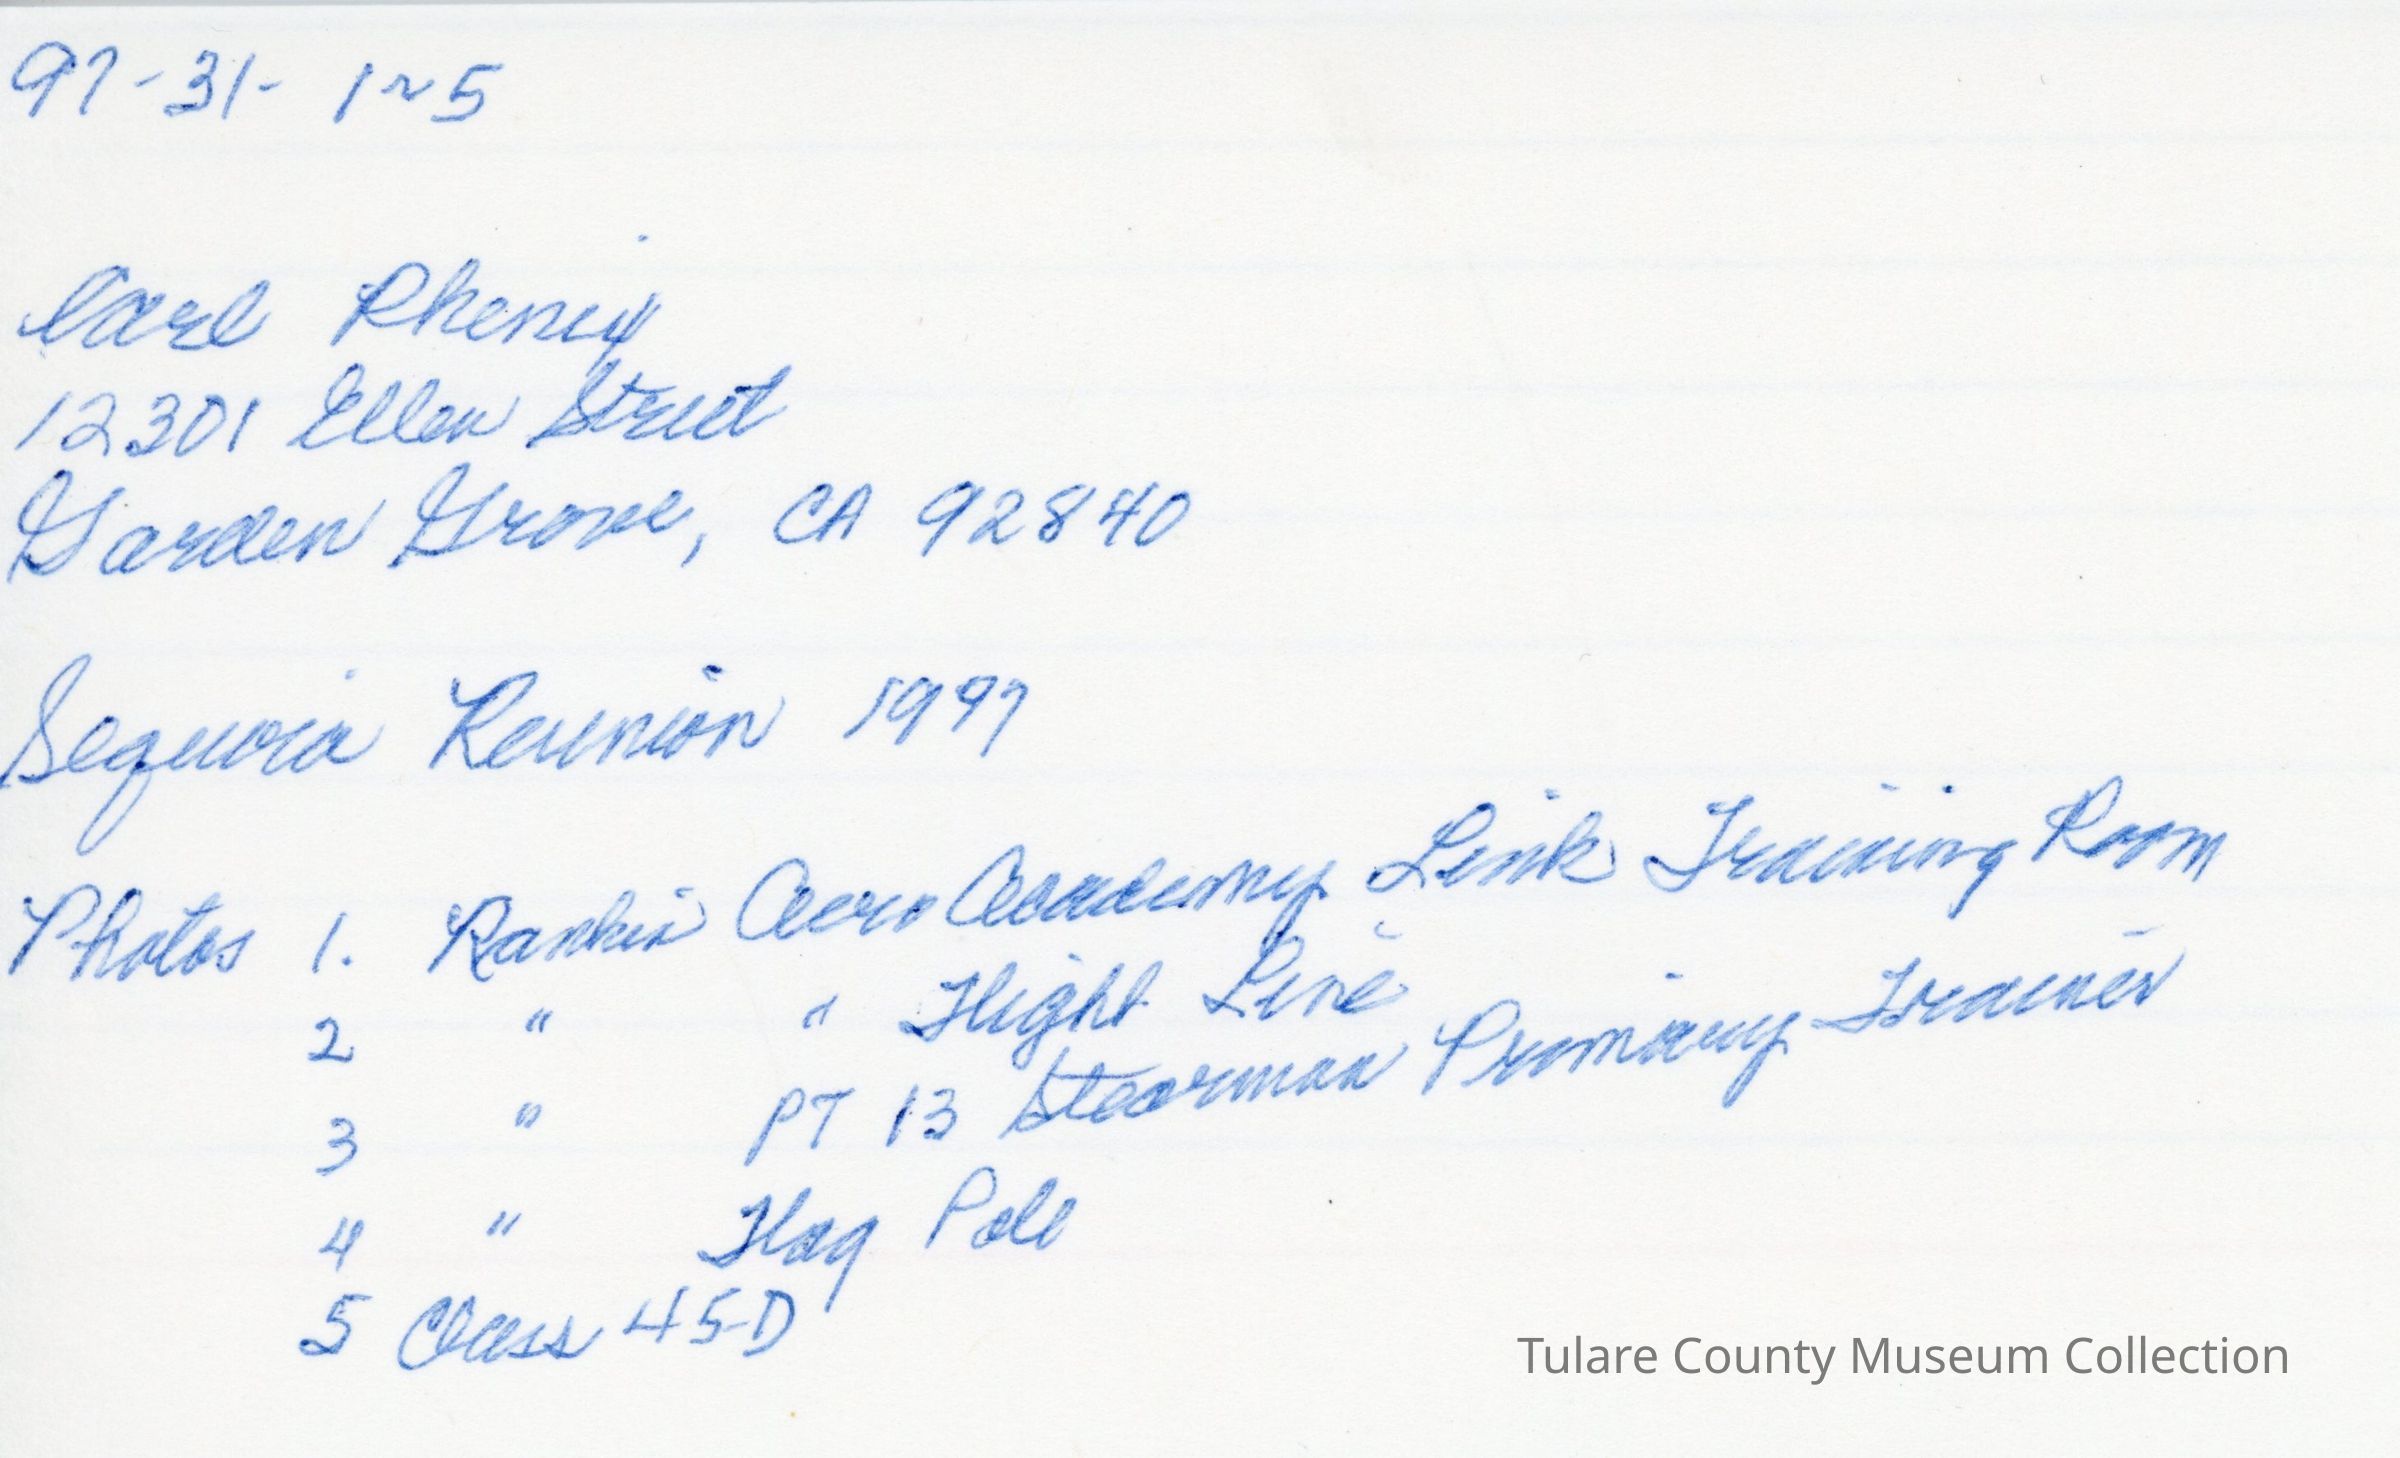 97-31- 1~5
Carl Phenix
12301 Ellen Street
Garden Grove, CA 92840
Sequoia Reunion 1997
Photos 1. Rankin Aero Academy Link Training Room
2 " " Flight Line
3 " PT 13 Stearman Primary Trainer
4 " Flag Pole
5 Class 45-D
Tulare County Museum Collection